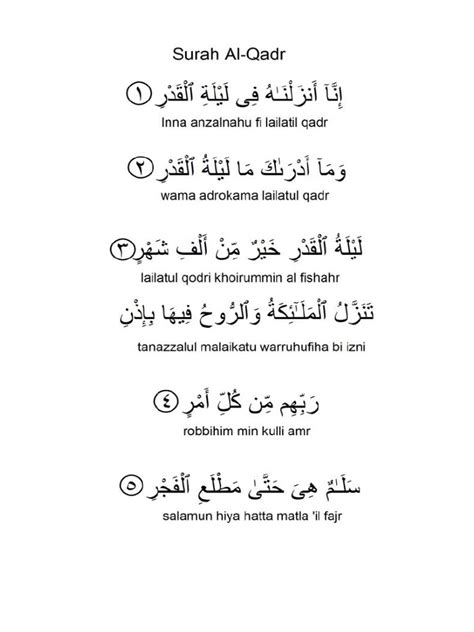 Surah Al-Qadr
إِنَّآ أَنزَلْنَـٰهُ فِى لَيْلَةِ ٱلْقَدْرِ ١
Inna anzalnahu fi lailatil qadr
وَمَآ أَدْرَىٰكَ مَا لَيْلَةُ ٱلْقَدْرِ ٢
wama adrokama lailatul qadr
لَيْلَةُ ٱلْقَدْرِ خَيْرٌ مِّنْ أَلْفِ شَهْرٍ ٣
lailatul qodri khoirummin al fishahr
تَنَزَّلُ ٱلْمَلَـٰٓئِكَةُ وَٱلرُّوحُ فِيهَا بِإِذْنِ
tanazzalul malaikatu warruhufiha bi izni
رَبِّهِم مِّن كُلِّ أَمْرٍ ٤
robbihim min kulli amr
سَلَـٰمٌ هِىَ حَتَّىٰ مَطْلَعِ ٱلْفَجْرِ ٥
salamun hiya hatta matla 'il fajr